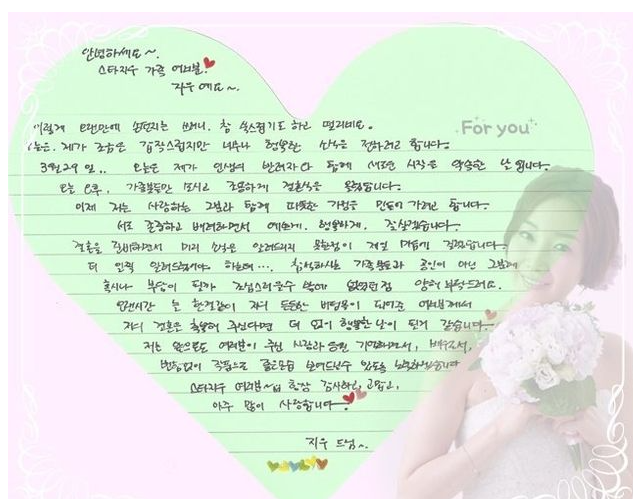 안녕하세요~.
스타지우 가족 여러분.
지우 예요~.
이렇게 오랜만에 손편지를 쓰려니, 참 쑥스럽기도 하고 떨리네요.
For you
오늘은, 제가 조금은 갑작스럽지만 너무나 행복한 소식을 전하려고 합니다.
3월 29일.. 오늘은 제가 인생의 반려자와 함께 새로운 시작을 약속한 날 입니다.
오늘 오후, 가족분들만 모시고 조용하게 결혼식을 올렸습니다.
이제 저는 사랑하는 그분과 함께 따뜻한 가정을 만들어 가려고 합니다.
서로 존중하고 배려하면서 예쁘게, 행복하게, 잘살겠습니다.
결혼을 준비하면서 미리 소식을 알려드리지 못한점이 제일 마음에 걸렸습니다.
더 일찍 알려드렸어야 하는데..., 참석하시는 가족분들과 공인이 아닌 그분께
혹시나 부담이 될까 조심스러울수 밖에 없었던점 양해 부탁드려요.
오랜시간 늘 한결같이 저의 든든한 버팀목이 되어준 여러분께서
저의 결혼을 축복해 주신다면 더 없이 행복한 날이 될거 같습니다.
저는 앞으로도 여러분이 주신 사랑과 응원 기억하면서, 배우로서,
변함없이 작품으로 좋은모습 보여드릴수 있도록 노력하겠습니다
스타지우 여러분~ 항상 감사하고, 고맙고,
아주 많이 사랑합니다~.
지우 드림~.